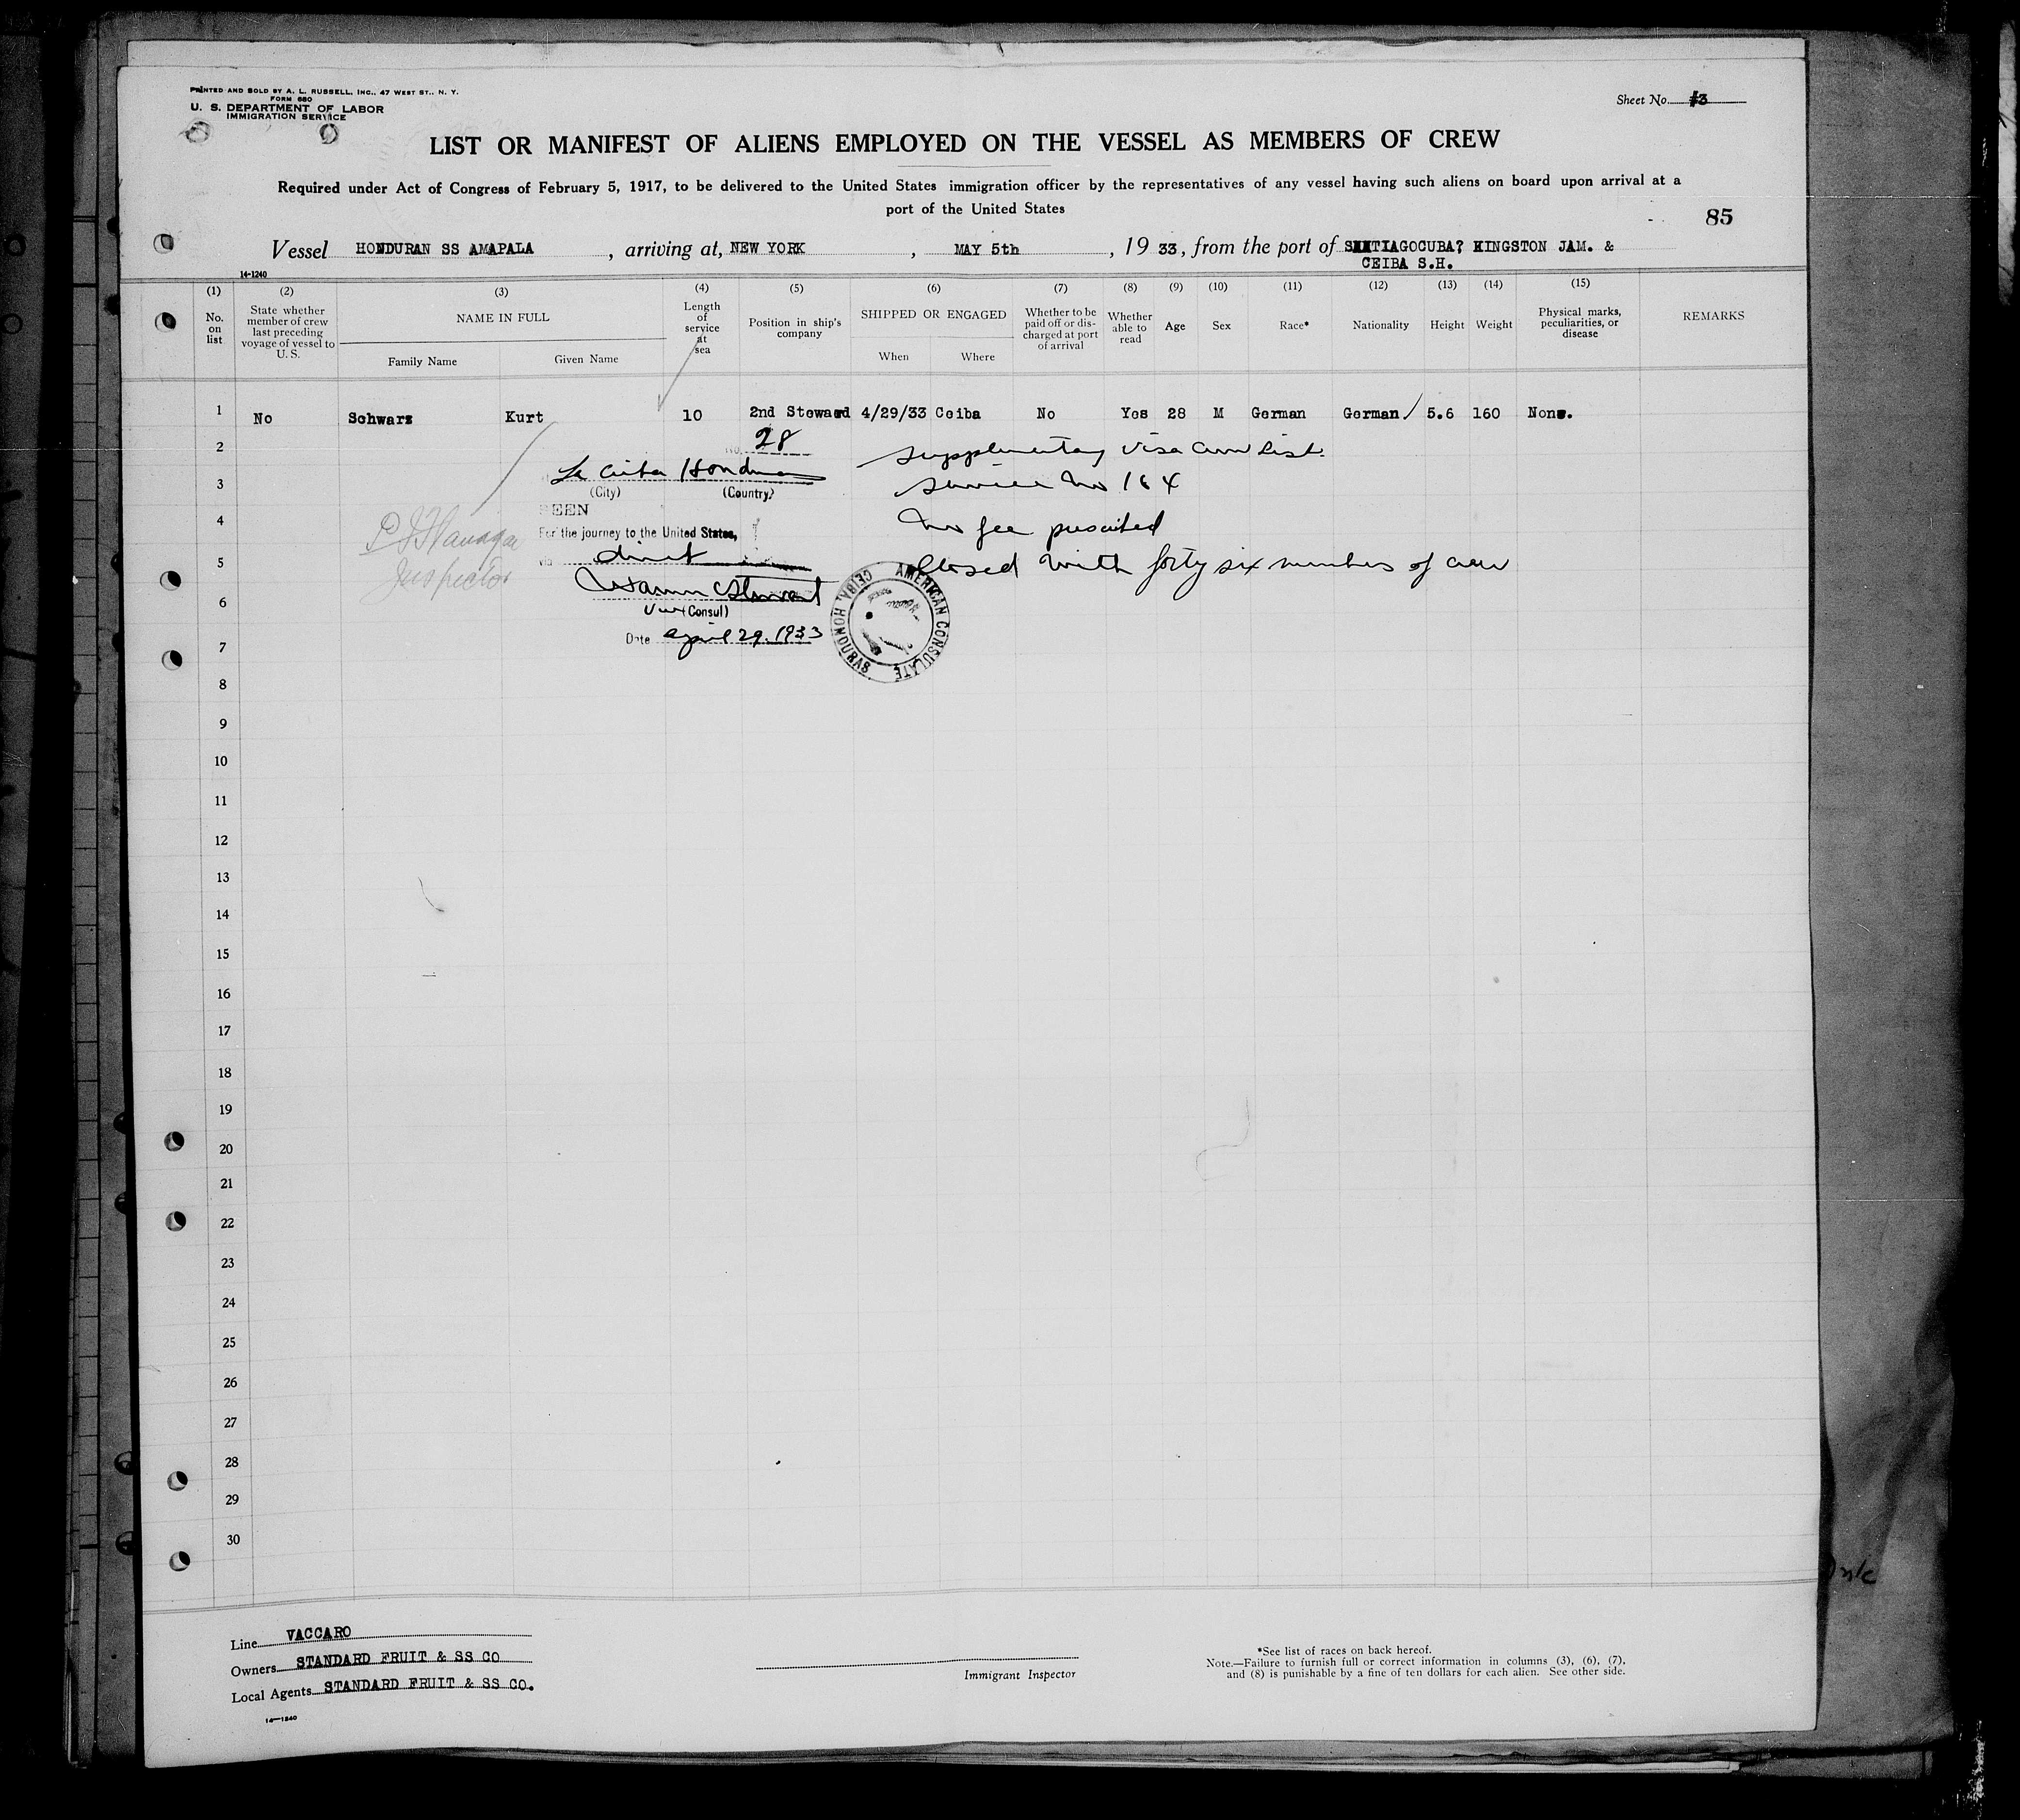 PRINTED AND SOLD BY A. L. RUSSELL, INC., 47 WEST ST., N. Y.
FORM 680
U. S. DEPARTMENT OF LABOR
IMMIGRATION SERVICE
Sheet No. #3
LIST OR MANIFEST OF ALIENS EMPLOYED ON THE VESSEL AS MEMBERS OF CREW
Required under Act of Congress of February 5, 1917, to be delivered to the United States immigration officer by the representatives of any vessel having such aliens on board upon arrival at a
port of the United States
85
Vessel HONDURAN SS AMAPALA, arriving at, NEW YORK, MAY 5th, 19 33, from the port of SANTIAGOCUBA? KINGSTON JAM. &
CEIBA S.H.
14-1240
(1) (2) (3) (4) (5) (6) (7) (8) (9) (10) (11) (12) (13) (14) (15)
No. on list
State whether member of crew last preceding voyage of vessel to U. S.
NAME IN FULL
Family Name
Given Name
Length of service at sea
Position in ship's company
SHIPPED OR ENGAGED
When
Where
Whether to be paid off or discharged at port of arrival
Whether able to read
Age
Sex
Race*
Nationality
Height
Weight
Physical marks, peculiarities, or disease
REMARKS
1 No Schwarz Kurt 10 2nd Steward 4/29/33 Ceiba No Yes 28 M German German 5.6 160 None.
2
No. 28
Supplementary Visa Crew List.
La Ceiba Honduras
3
(City) (Country)
Service No 164
SEEN
4
No fee prescribed
For the journey to the United States,
P J Flanagan
Inspector
5
via direct
Closed with forty six members of crew
Warren C Stewart
6
Vice (Consul)
Date April 29. 1933
AMERICAN CONSULATE CEIBA, HONDURAS
7
8
9
10
11
12
13
14
15
16
17
18
19
20
21
22
23
24
25
26
27
28
29
30
Line VACCARO
Owners STANDARD FRUIT & SS CO
Local Agents STANDARD FRUIT & SS CO.
14-1240
Immigrant Inspector
*See list of races on back hereof.
Note.—Failure to furnish full or correct information in columns (3), (6), (7),
and (8) is punishable by a fine of ten dollars for each alien. See other side.